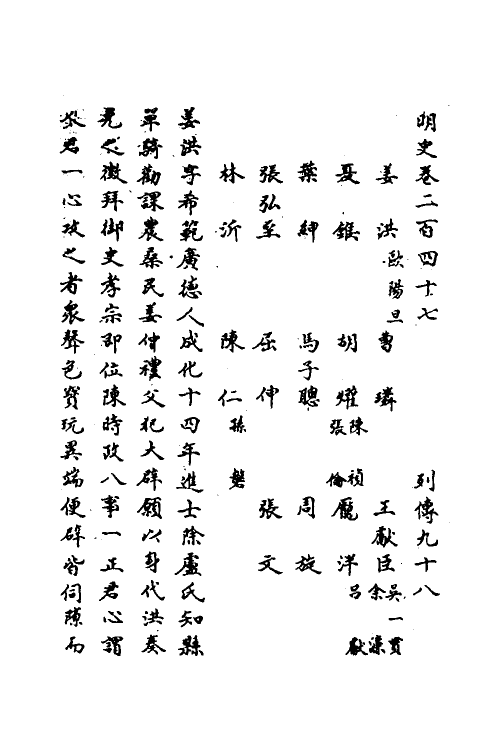 明史卷二百四十七　列傳九十八
姜洪　歐陽旦　曹璘　王獻臣　吳一貫　余濂
夏鍭　胡爟　陳禎　張倫　龐泮　呂獻
葉紳　馬子聰　周旋
張弘至　屈伸　張文
林沂　陳仁　孫磐
姜洪字希範廣德人成化十四年進士除盧氏知縣
單騎勸課農桑民姜仲禮父犯大辟願以身代洪奏
免之徵拜御史孝宗卽位陳時政八事一正君心謂
君一心攻之者衆聲色寶玩異端便辟皆伺隙而